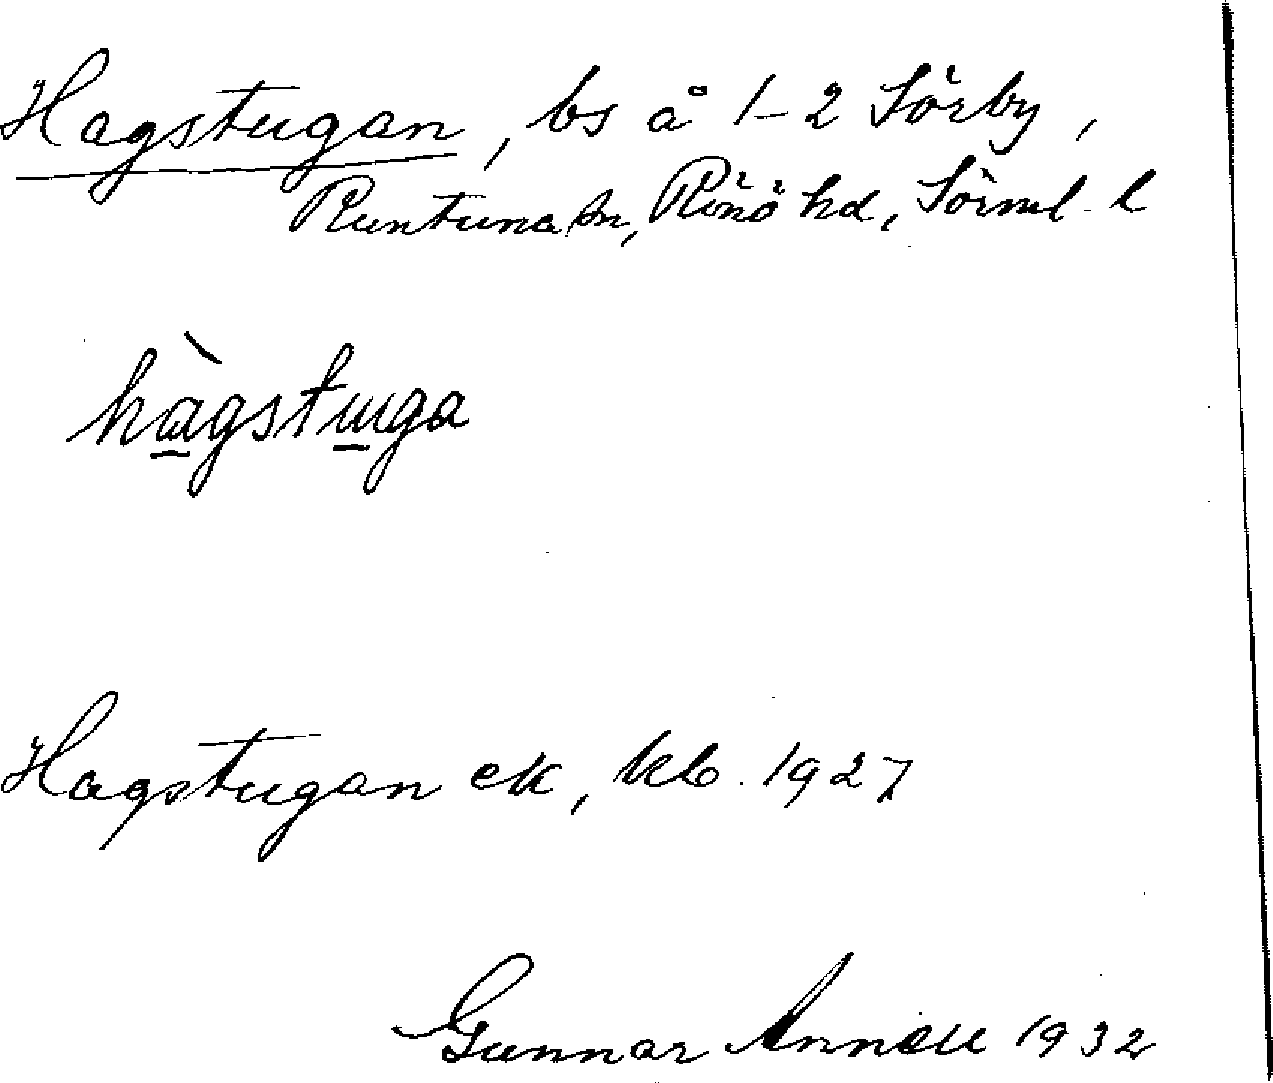 Hagstugan, bs å 1-2 Sörby,
Runtuna sn, Rönö hd, Sörml. l
hàgstuga
Hagstugan ek, kb. 1927
Gunnar Annell 1932